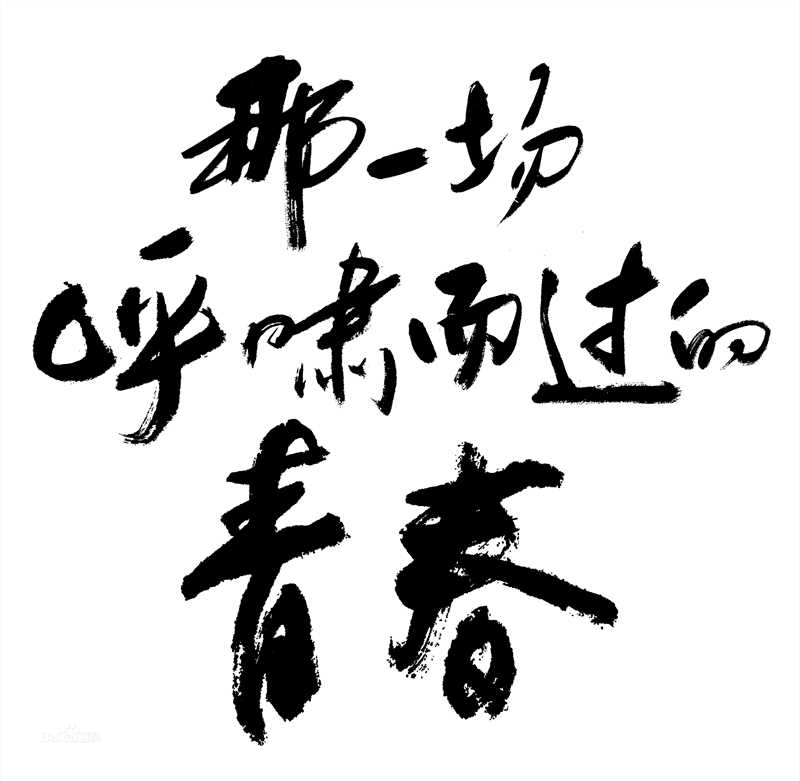 那一场
呼啸而过的
青春